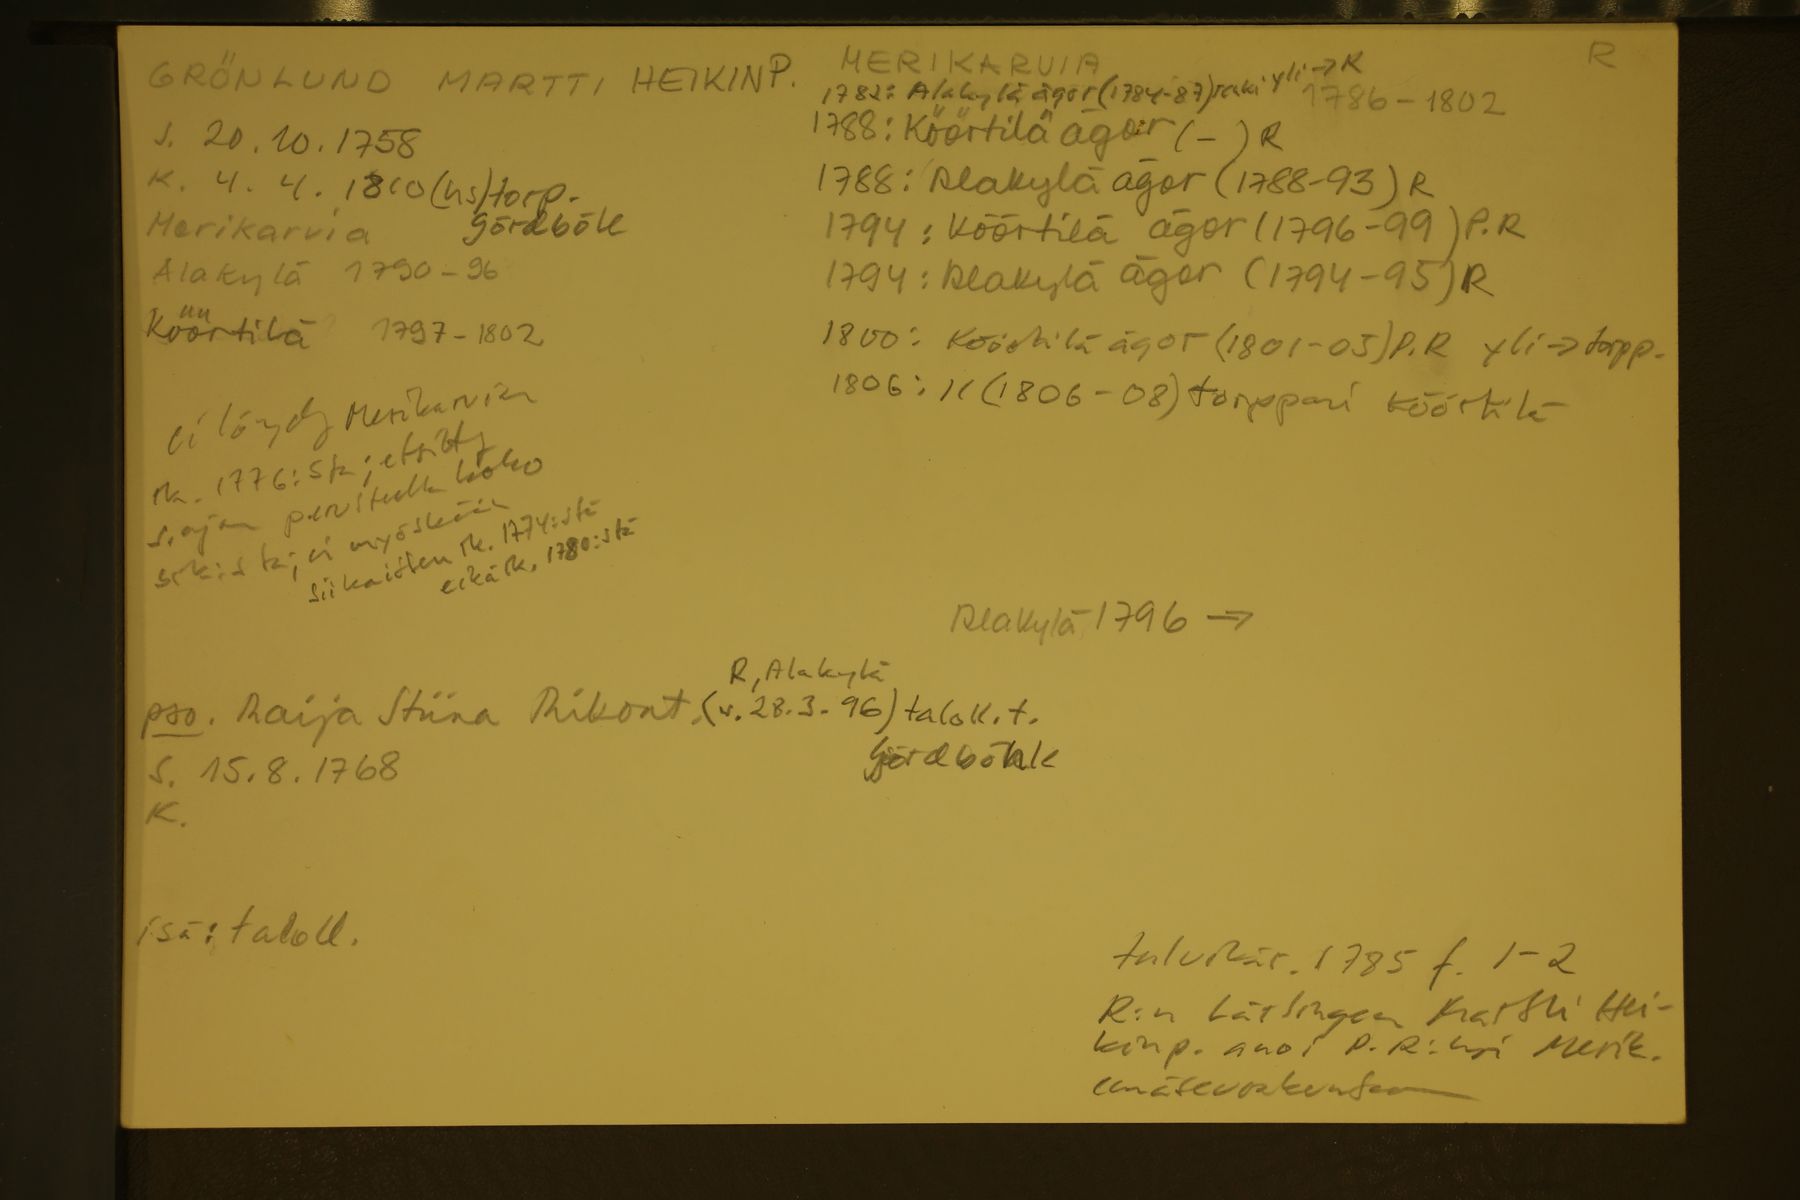 GRÖNLUND MARTTI HEIKINP.
s. 20.10.1758
k. 4. 4. 1810 (hs) torp.
Merikarvia Gördbök
Alakylä 1790-96
Köörtilä 1797-1802
ei löydy Merikarvian
rk. 1776:sta; etsitty
s.ajan perusteella koko
srk:sta; ei myöskään
Siikaisten rk. 1774:stä
eikä rk. 1780:stä
MERIKARVIA R
1782: Alakylä ägor (1784-87) renki yli → R 1786-1802
1788: Köörtilä ägor (-) R
1788: Alakylä ägor (1788-93) R
1794: Köörtilä ägor (1796-99) P.R
1794: Alakylä ägor (1794-95) R
1800: Köörtilä ägor (1801-05) P.R yli → torpp.
1806: 〃 (1806-08) torppari Köörtilä
Alakylä 1796 →
R, Alakylä
pso. Maija Stiina Mikont. (v. 28.3.96) taloll.t.
Gördböhk
s. 15.8.1768
k.
isä: taloll.
talvikär. 1785 f. 1-2
R:n Martti Hei-
kinp. anoi P.R:ksi Merik.
emäseurakuntaan